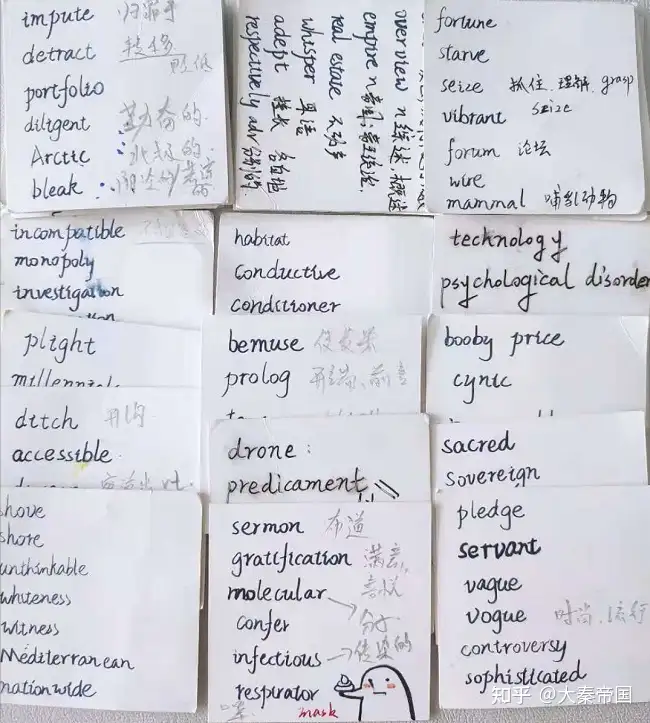 impute 归罪于
detract 转移
贬低
portfolio
diligent 勤奋的
Arctic 北极的
bleak
overview n 综述、概述
empire n 帝国;
real estate 不动产
whisper 耳语
adept 擅长 各自地
respectively adv 分别的
fortune
starve
seize 抓住、理解、grasp
seize
vibrant
forum 论坛
wire
mammal 哺乳动物
incompatible
monopoly
investigation
habitat
conductive
conditioner
technology
psychological disorder
plight
millennial
bemuse 使发呆
prolog 开端、前言
booby price
cynic
ditch 开沟
accessible
drone:
predicament
sacred
sovereign
shove
shore
unthinkable
whiteness
witness
Mediterranean
nationwide
sermon 布道
gratification 满意,
喜悦
molecular
分子
confer
infectious 传染的
respirator
mask
pledge
servant
vague
vogue 时尚、流行
controversy
sophisticated
知乎 @大秦帝国